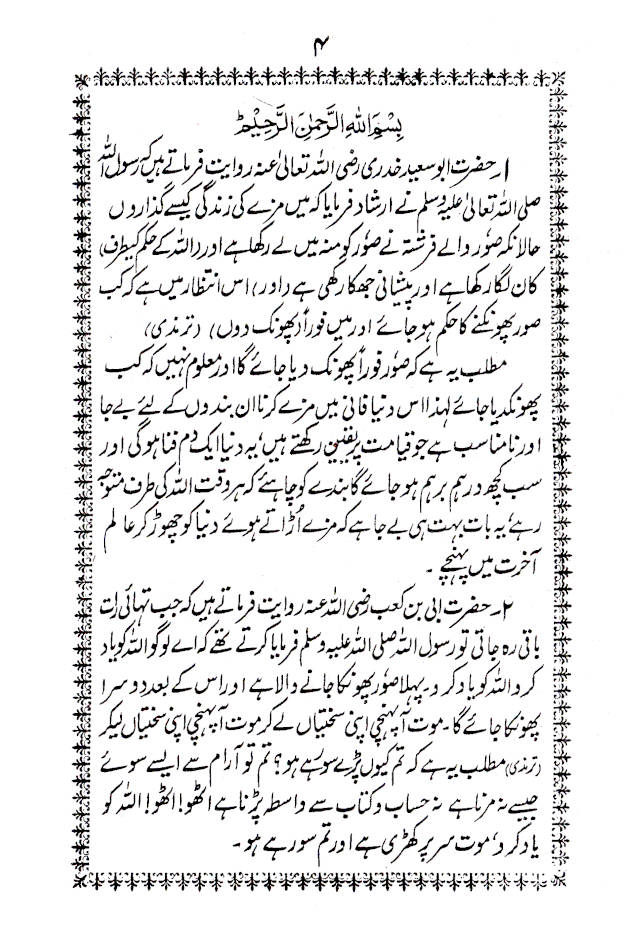 ۴
بِسْمِ اللهِ الرَّحْمٰنِ الرَّحِيْمِ ط
۱۔ حضرت ابو سعید خدری رضی اللہ تعالیٰ عنہ روایت فرماتے ہیں کہ رسول اللہ
صلی اللہ تعالیٰ علیہ وسلم نے ارشاد فرمایا کہ میں مزے کی زندگی کیسے گذاروں
حالانکہ صُور والے فرشتہ نے صُور کو منہ میں لے رکھا ہے اور (اللہ کے حکم کیطرف)
کان لگا رکھا ہے اور پیشانی جھکا رکھی ہے (اور) اس انتظار میں ہے کہ کب
صور پھونکنے کا حکم ہو جائے اور میں فوراً پھونک دوں) (ترمذی)
مطلب یہ ہے کہ صُور فوراً پھونک دیا جائے گا اور معلوم نہیں کہ کب
پھونکدیا جائے لہٰذا اس دنیا فانی میں مزے کرنا ان بندوں کے لئے بے جا
اور نامناسب ہے جو قیامت پر یقین رکھتے ہیں، یہ دنیا ایک دم فنا ہوگی اور
سب کچھ درہم برہم ہو جائے گا بندے کو چاہئے کہ ہر وقت اللہ کی طرف متوجہ
رہے، یہ بات بہت ہی بے جا ہے کہ مزے اُڑاتے ہوئے دنیا کو چھوڑ کر عالم
آخرت میں پہنچے ۔
۲۔ حضرت ابی بن کعب رضی اللہ عنہ روایت فرماتے ہیں کہ جب تہائی رات
باقی رہ جاتی تو رسول اللہ صلی اللہ علیہ وسلم فرمایا کرتے تھے کہ اے لوگو اللہ کو یاد
کرو اللہ کو یاد کرو۔ پہلا صور پھونکا جانے والا ہے اور اس کے بعد دوسرا
پھونکا جائے گا۔ موت آپہنچی اپنی سختیاں لے کر موت آپہنچی اپنی سختیاں لیکر
(ترمذی) مطلب یہ ہے کہ تم کیوں پڑے سورہے ہو؟ تم تو آرام سے ایسے سوئے
جیسے نہ مرنا ہے نہ حساب وکتاب سے واسطہ پڑنا ہے اٹھو! اٹھو! اللہ کو
یاد کرو، موت سر پر کھڑی ہے اور تم سو رہے ہو ۔